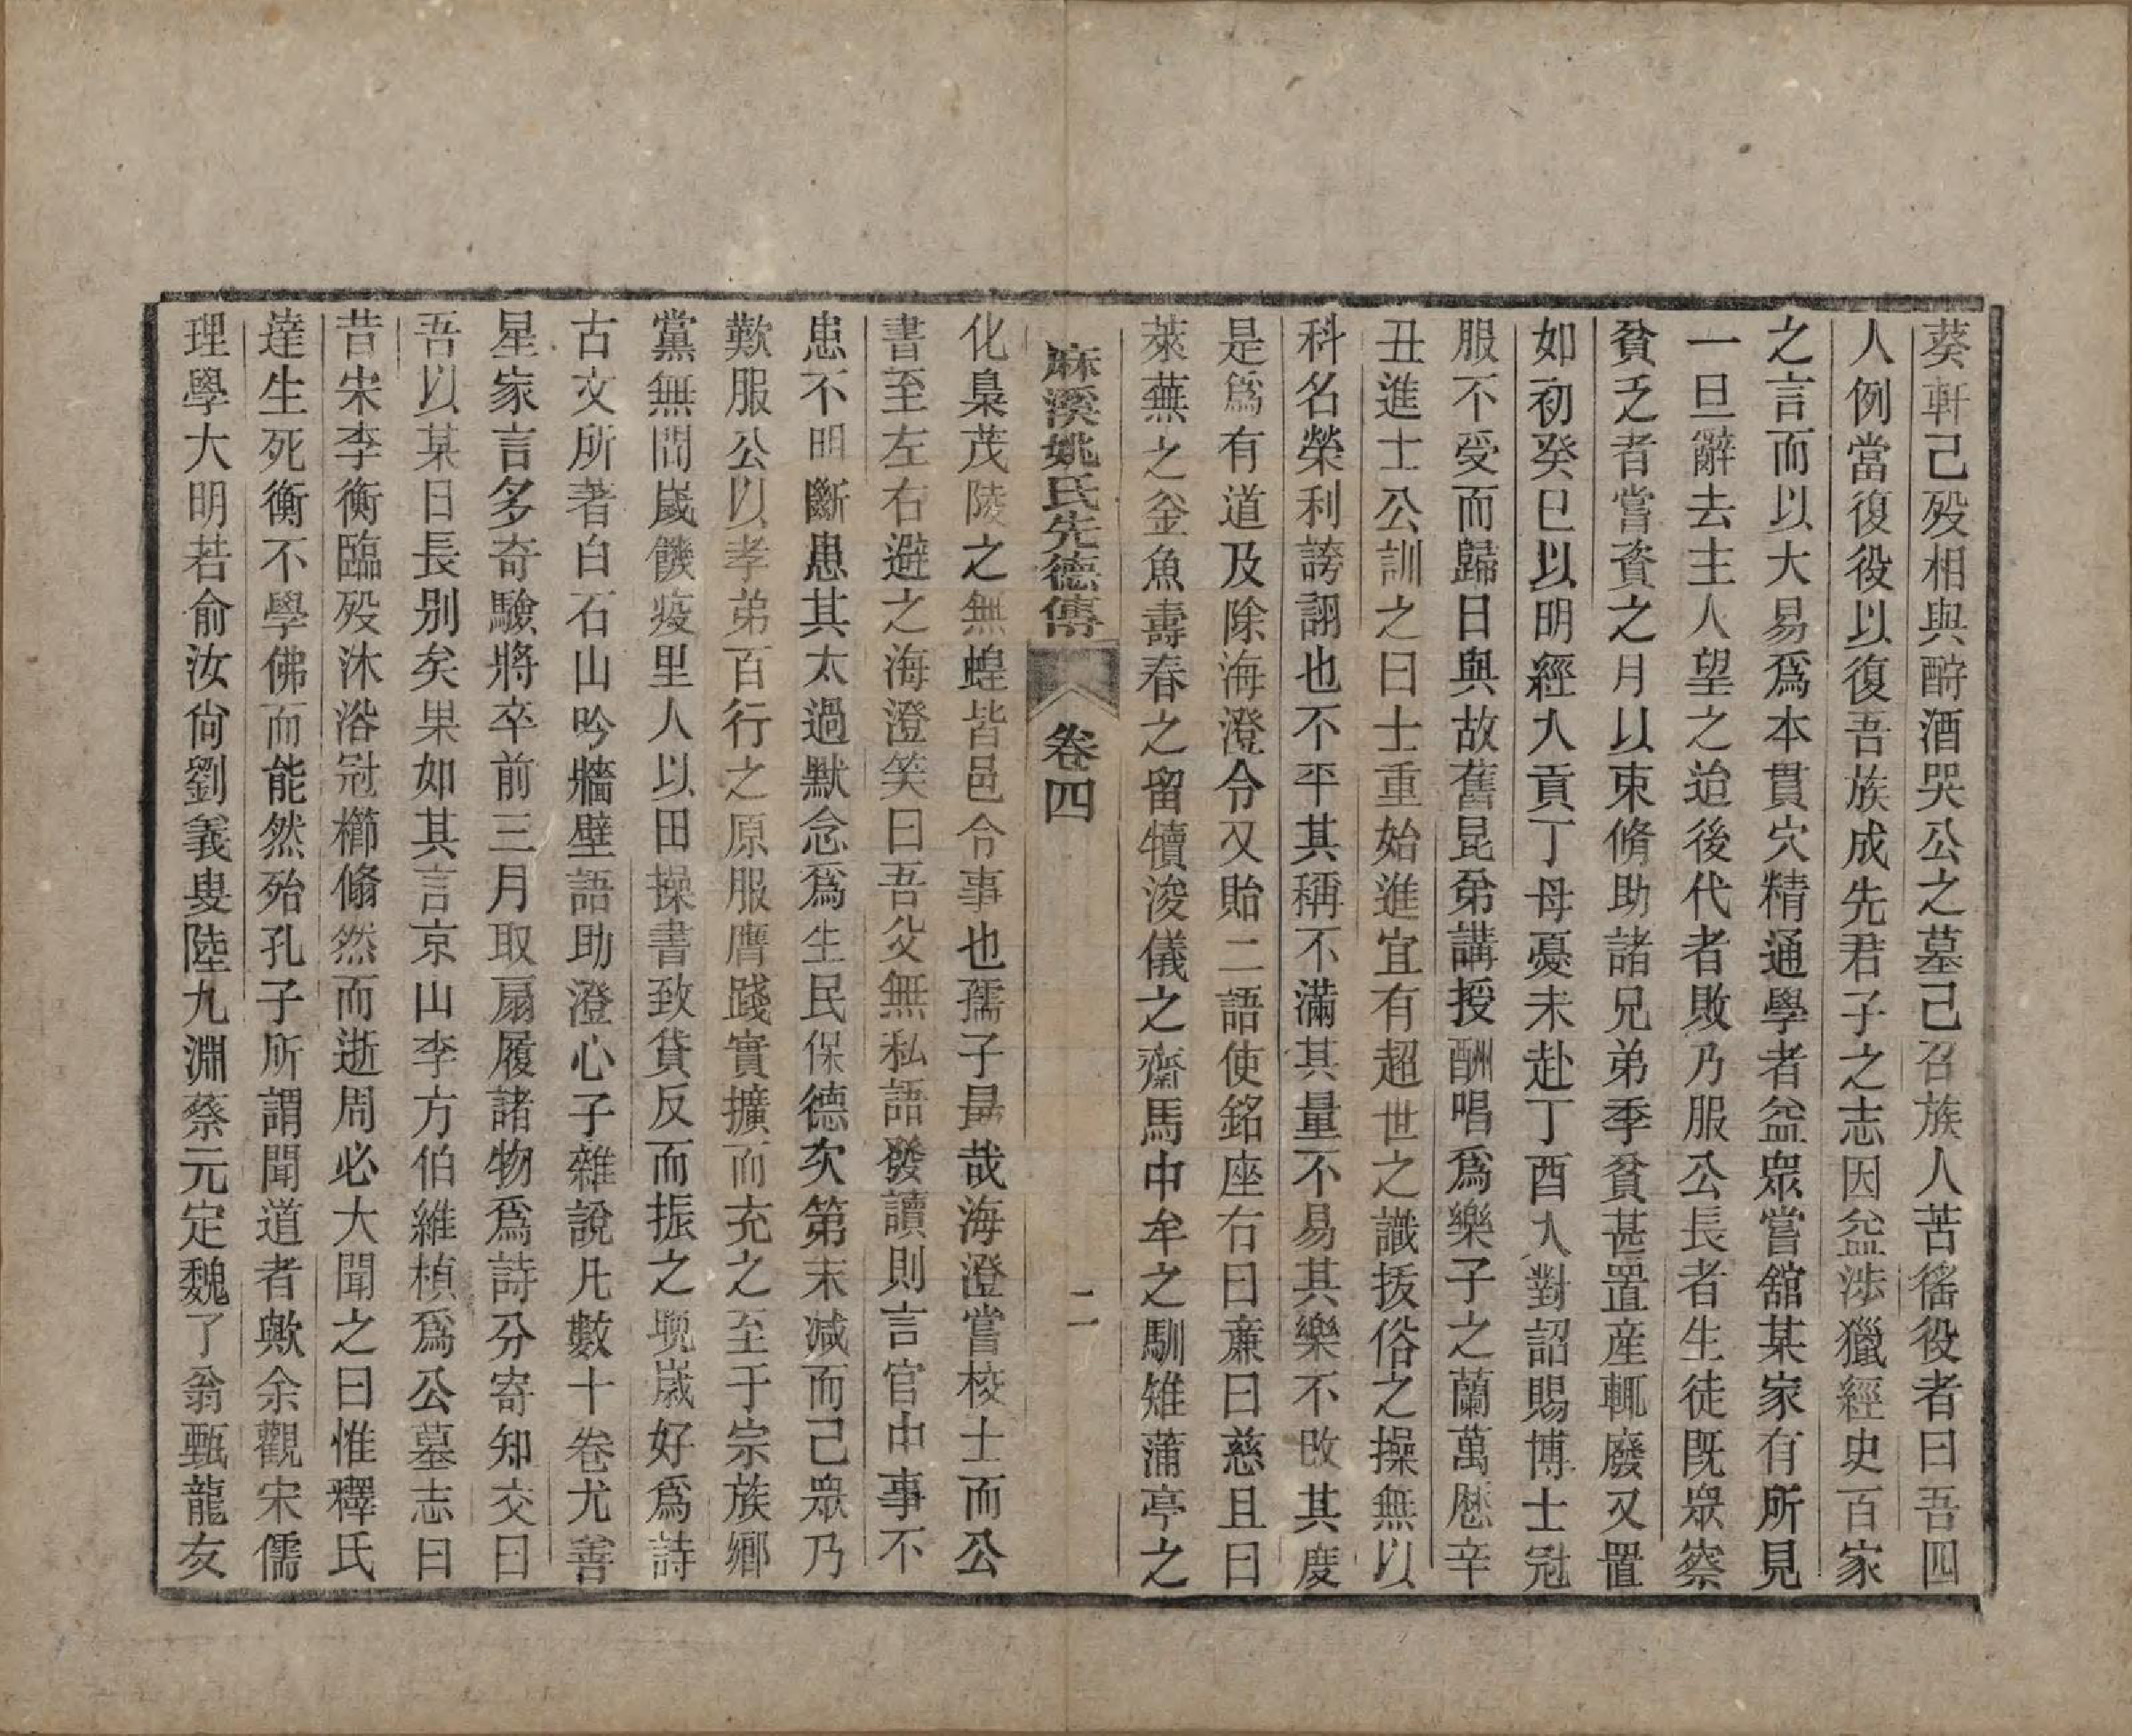 葵軒己歿相與酹酒哭公之墓己召族人苦徭役者曰吾四
人例當復役以復吾族成先君子之志因益涉獵經史百家
之言而以大易爲本貫穴精通學者益眾嘗舘某家有所見
一旦辭去主人望之迨後代者敗乃服公長者生徒既眾察
貧乏者嘗資之月以束脩助諸兄弟季貧甚置産輒廢又置
如初癸巳以明經入貢丁母憂未赴丁酉入對詔賜博士冠
服不受而歸日與故舊昆弟講授酬唱爲樂子之蘭萬厯辛
丑進士公訓之曰士重始進宜有超世之識拔俗之操無以
科名榮利誇詡也不平其稱不滿其量不易其樂不改其度
是爲有道及除海澄令又貽二語使銘座右曰亷曰慈且曰
萊蕪之釡魚壽春之留犢浚儀之齋馬中牟之馴雉蒲亭之
麻溪姚氏先德傳 卷四 二
化梟茂陵之無蝗皆邑令事也孺子勗哉海澄嘗校士而公
書至左右避之海澄笑曰吾父無私語發讀則言官中事不
患不明斷患其太過默念爲生民保德次第末減而己眾乃
歎服公以孝弟百行之原服膺踐實擴而充之至于宗族鄉
黨無間歲饑疫里人以田操書致貸反而振之晚歲好爲詩
古文所著白石山吟牆壁語助澄心子雜說凡數十卷尤善
星家言多奇驗將卒前三月取扇履諸物爲詩分寄知交曰
吾以某日長別矣果如其言京山李方伯維楨爲公墓志曰
昔宋李衡臨歿沐浴冠櫛翛然而逝周必大聞之曰惟釋氏
達生死衡不學佛而能然殆孔子所謂聞道者歟余觀宋儒
理學大明若俞汝尚劉義叟陸九淵蔡元定魏了翁甄龍友